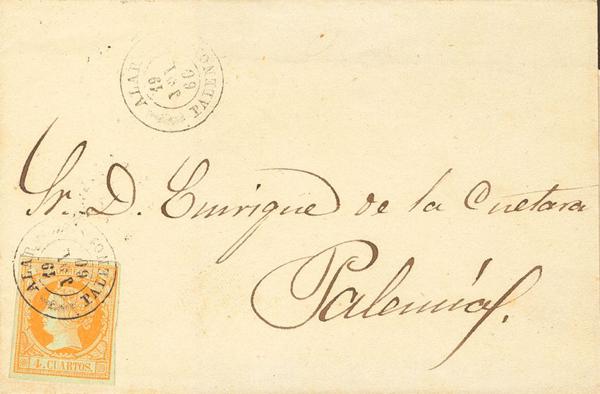 ALAR
PALEN
Sr. D. Enrique de la Cuetara
Palencia.
ALAR
PALEN
4 CUARTOS.